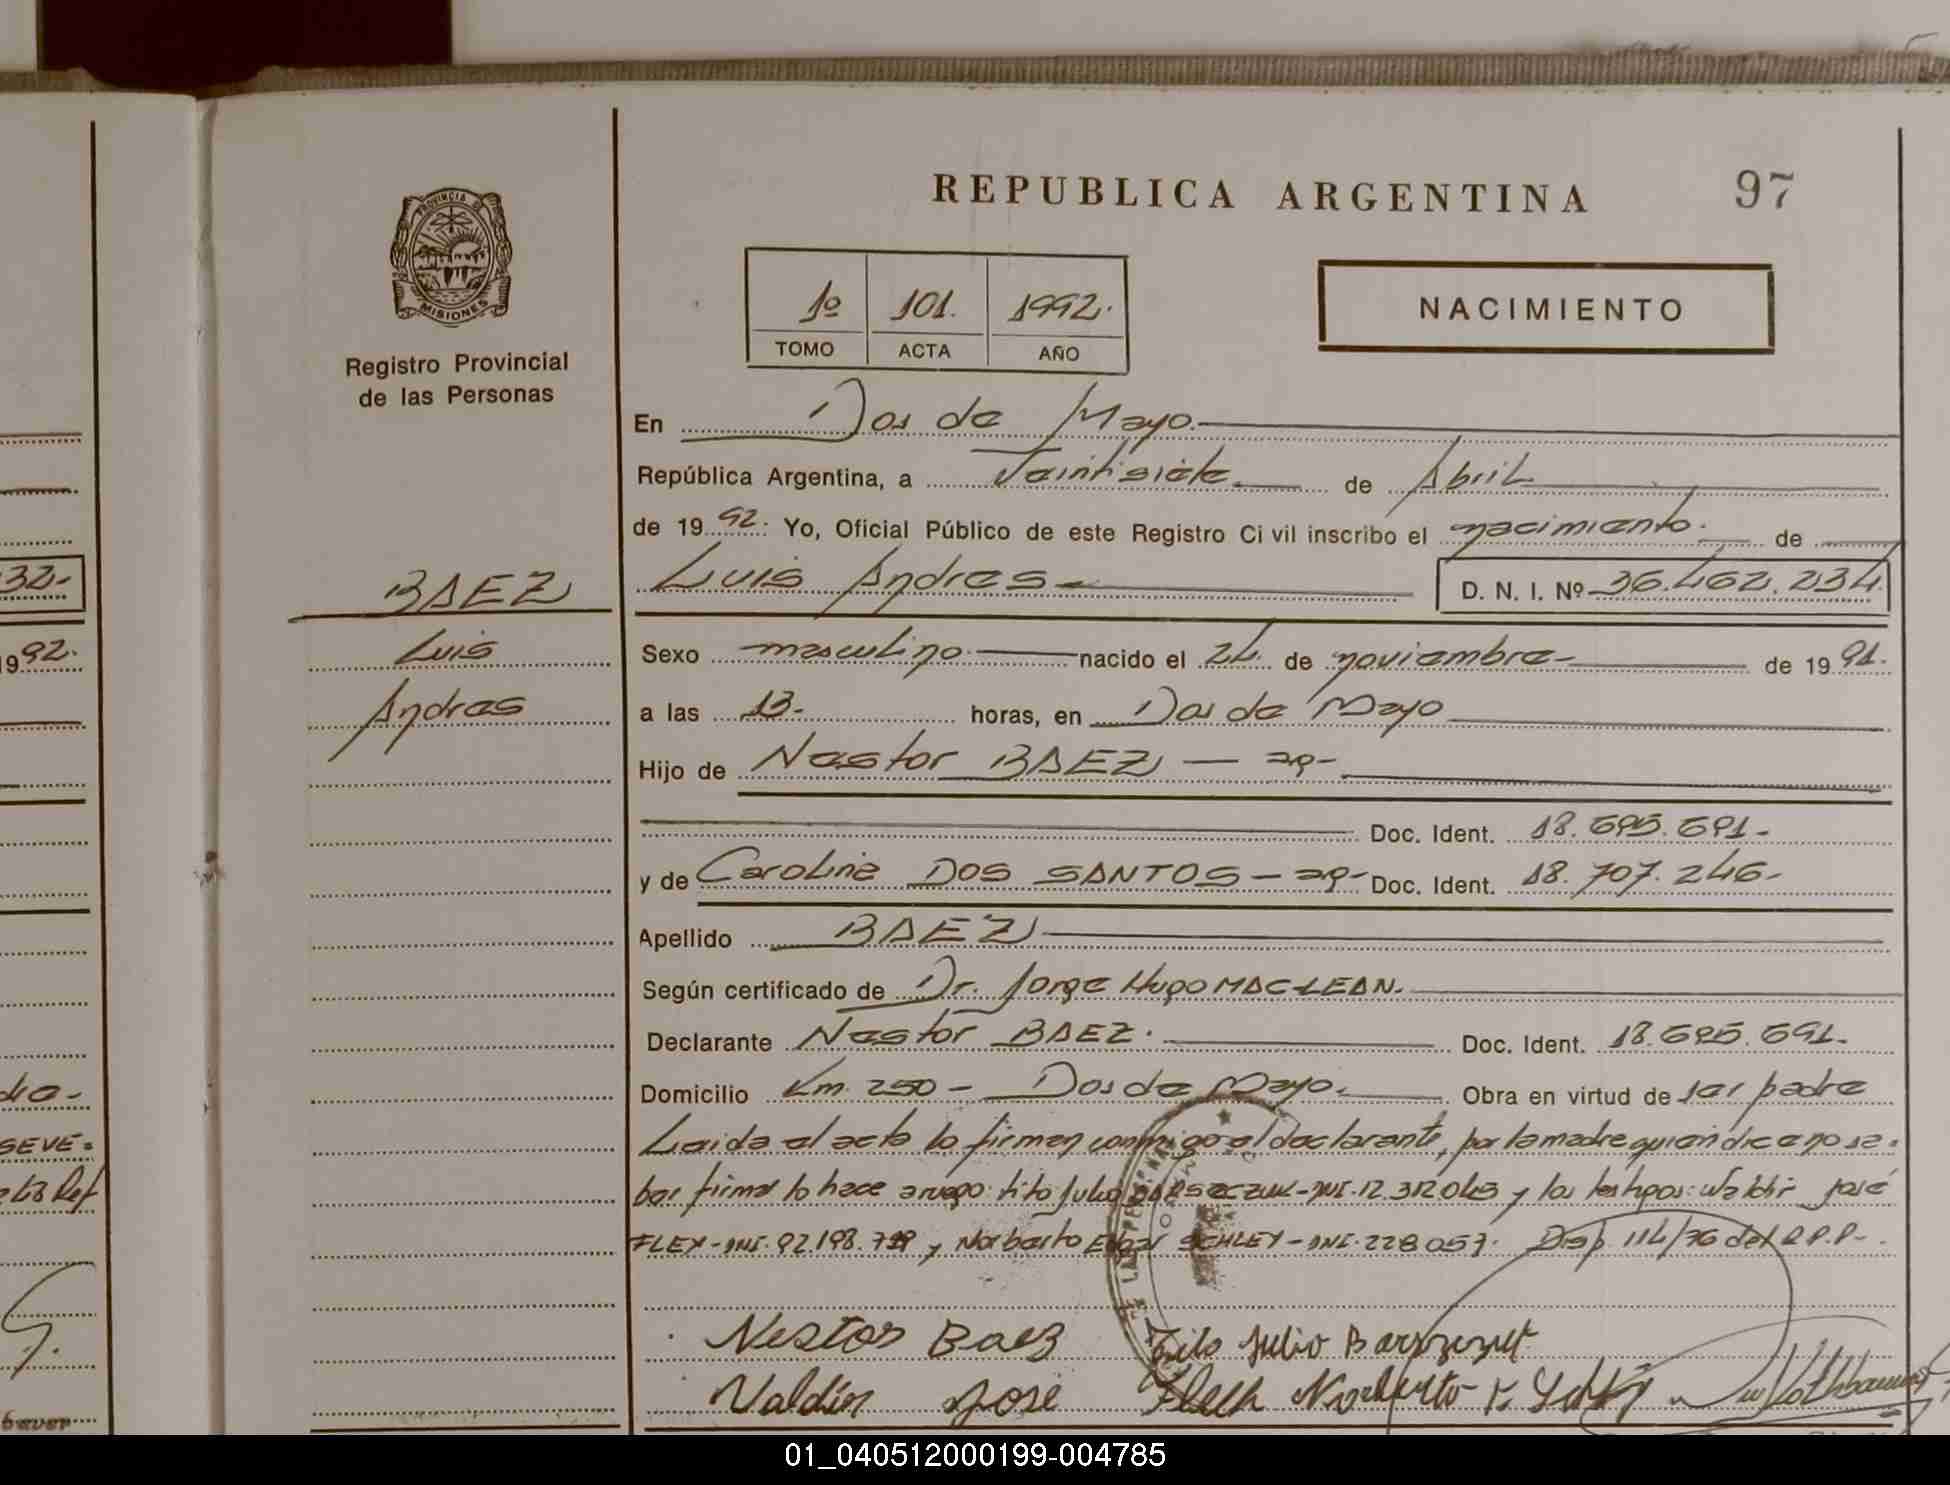 REPUBLICA ARGENTINA
97
PROVINCIA DE
MISIONES
Registro Provincial
de las Personas
1º 101. 1992.
TOMO ACTA AÑO
NACIMIENTO
En Dos de Mayo.
República Argentina, a Veintisiete de Abril
de 1992. Yo, Oficial Público de este Registro Civil inscribo el nacimiento. de
Luis Andres D. N. I. Nº 36.462.234
BAEZ
Luis
Andres
Sexo masculino nacido el 24 de noviembre de 1991.
a las 13. horas, en Dos de Mayo
Hijo de Nestor BAEZ — ar-
Doc. Ident. 18.695.691-
y de Carolina DOS SANTOS - ar- Doc. Ident. 18.707.246-
Apellido BAEZ
Según certificado de Dr. Jorge Hugo MAC-LEAN.
Declarante Nestor BAEZ. Doc. Ident. 18.695.691-
Domicilio Km. 250 - Dos de Mayo. Obra en virtud de ser padre
Leida el acta la firman conmigo el declarante, por la madre quien dice no sa-
ber firmar lo hace a ruego: Tito Julio -DNI.12.312.043 y los testigos: Waldir José
FLEX-DNI.92.198.719 y Norberto Edgar SCHLEY-DNI.228057. Disp. 114/76 del R.P.P.-
Nestor Baez Tito Julio
Valdir Jose Norberto
32-
1992.
SEVE=
01_040512000199-004785